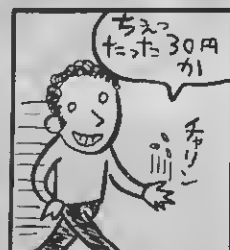 ちえっ
たった30円
か
チャリン